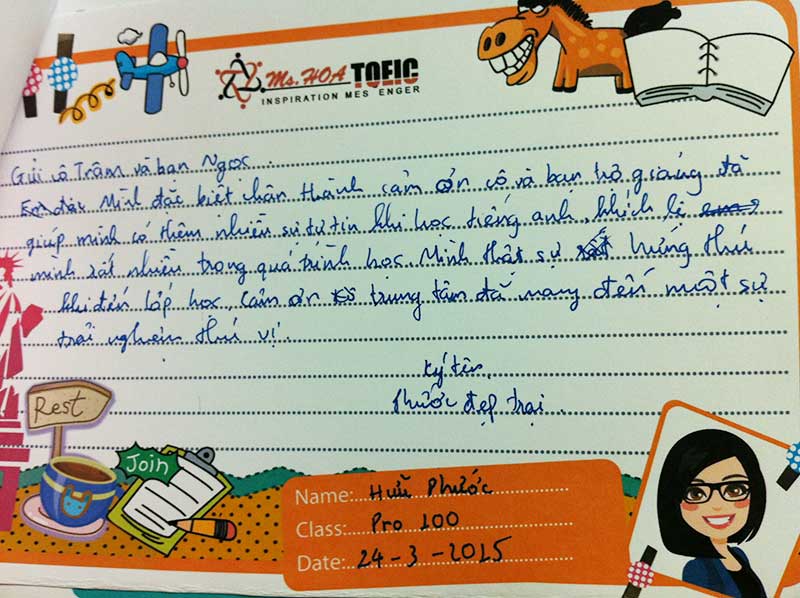 Ms. HOA TOEIC
INSPIRATION MES ENGER
Gửi cô Trâm và bạn Ngọc.
Mình đặc biệt chân thành cảm ơn cô và bạn trợ giảng đã
giúp mình có thêm nhiều sự tự tin khi học tiếng anh, khích lệ
mình rất nhiều trong quá trình học. Mình thật sự hứng thú
khi đến lớp học, cảm ơn trung tâm đã mang đến một sự
trải nghiệm thú vị.
Ký tên,
Phước đẹp trai.
Rest
Join
Name: Hữu Phước
Class: Pro 100
Date: 24-3-2015